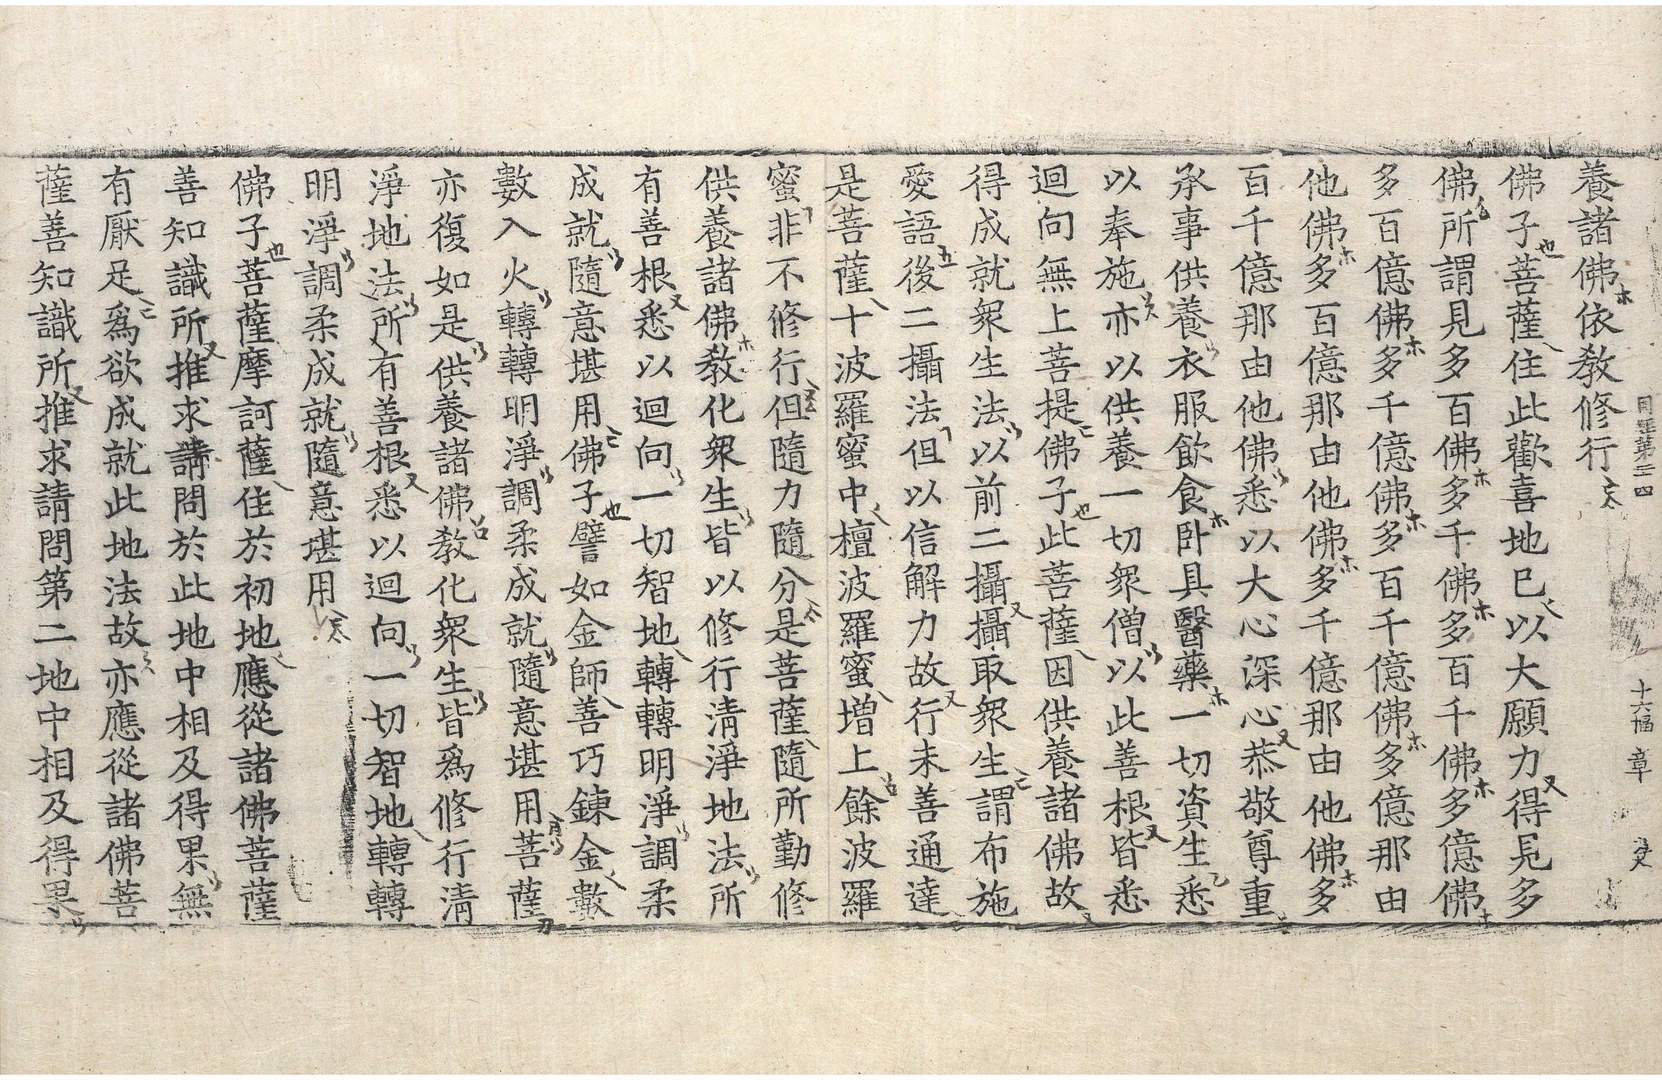 養諸佛依教修行
佛子菩薩住此歡喜地已以大願力得見多
佛所謂見多百佛多千佛多百千佛多億佛
多百億佛多千億佛多百千億佛多億那由
他佛多百億那由他佛多千億那由他佛多
百千億那由他佛悉以大心深心恭敬尊重
承事供養衣服飲食卧具醫藥一切資生悉
以奉施亦以供養一切衆僧以此善根皆悉
迴向無上菩提佛子此菩薩因供養諸佛故
得成就衆生法以前二攝攝取衆生謂布施
愛語後二攝法但以信解力故行未善通達
是菩薩十波羅蜜中檀波羅蜜增上餘波羅
蜜非不修行但隨力隨分是菩薩隨所勤修
供養諸佛教化衆生皆以修行清淨地法所
有善根悉以迴向一切智地轉轉明淨調柔
成就隨意堪用佛子譬如金師善巧鍊金數
數入火轉轉明淨調柔成就隨意堪用菩薩
亦復如是供養諸佛教化衆生皆爲修行清
淨地法所有善根悉以迴向一切智地轉轉
明淨調柔成就隨意堪用
佛子菩薩摩訶薩住於初地應從諸佛菩薩
善知識所推求請問於此地中相及得果無
有厭足爲欲成就此地法故亦應從諸佛菩
薩善知識所推求請問第二地中相及得果